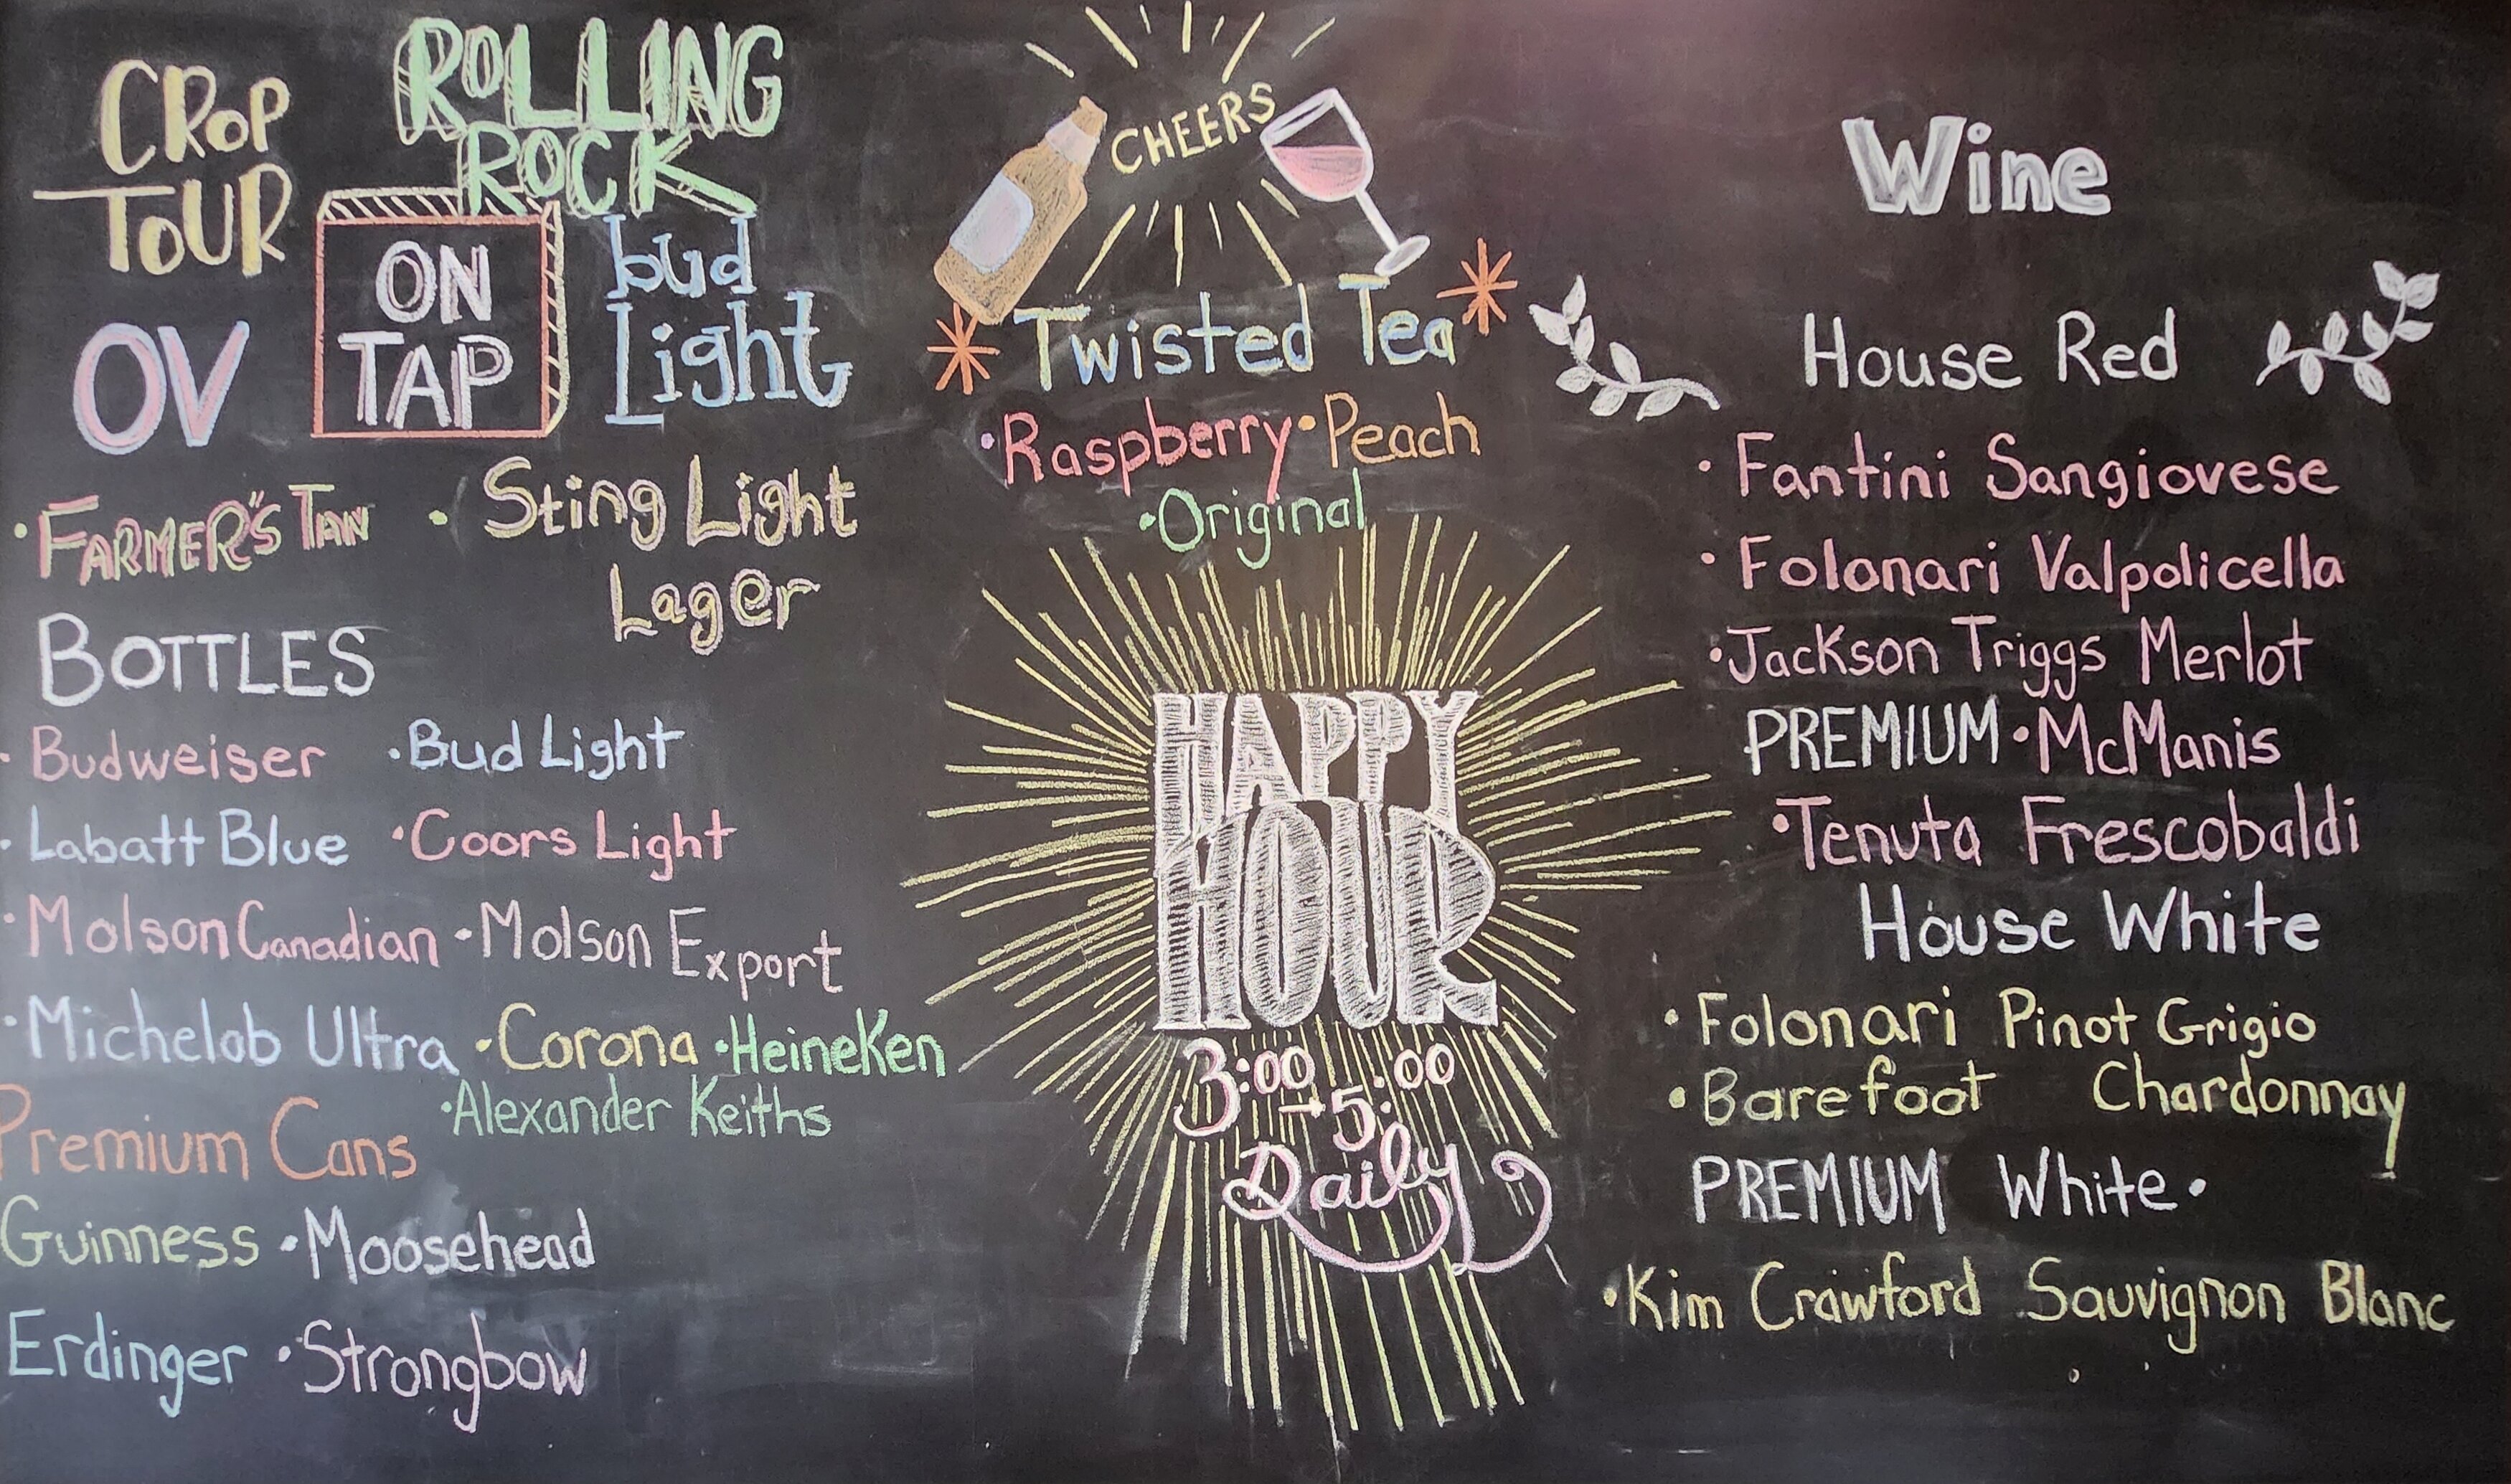 CROP
TOUR
ROLLING
ROCK
ON
TAP
bud
Light
OV
• FARMER'S TAN
• Sting Light
Lager
BOTTLES
• Budweiser • Bud Light
• Labatt Blue • Coors Light
• Molson Canadian • Molson Export
• Michelob Ultra • Corona • Heineken
• Alexander Keiths
Premium Cans
Guinness • Moosehead
Erdinger • Strongbow
CHEERS
Twisted Tea
• Raspberry • Peach
• Original
HAPPY
HOUR
3:00 → 5:00
Daily
Wine
House Red
• Fantini Sangiovese
• Folonari Valpolicella
• Jackson Triggs Merlot
PREMIUM • McManis
• Tenuta Frescobaldi
House White
• Folonari Pinot Grigio
• Barefoot Chardonnay
PREMIUM White •
• Kim Crawford Sauvignon Blanc